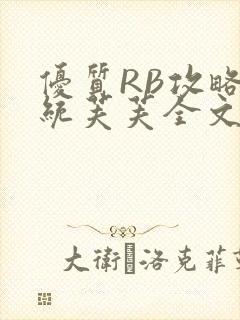 優質RB攻略
統芙芙全文
大衛·洛克菲